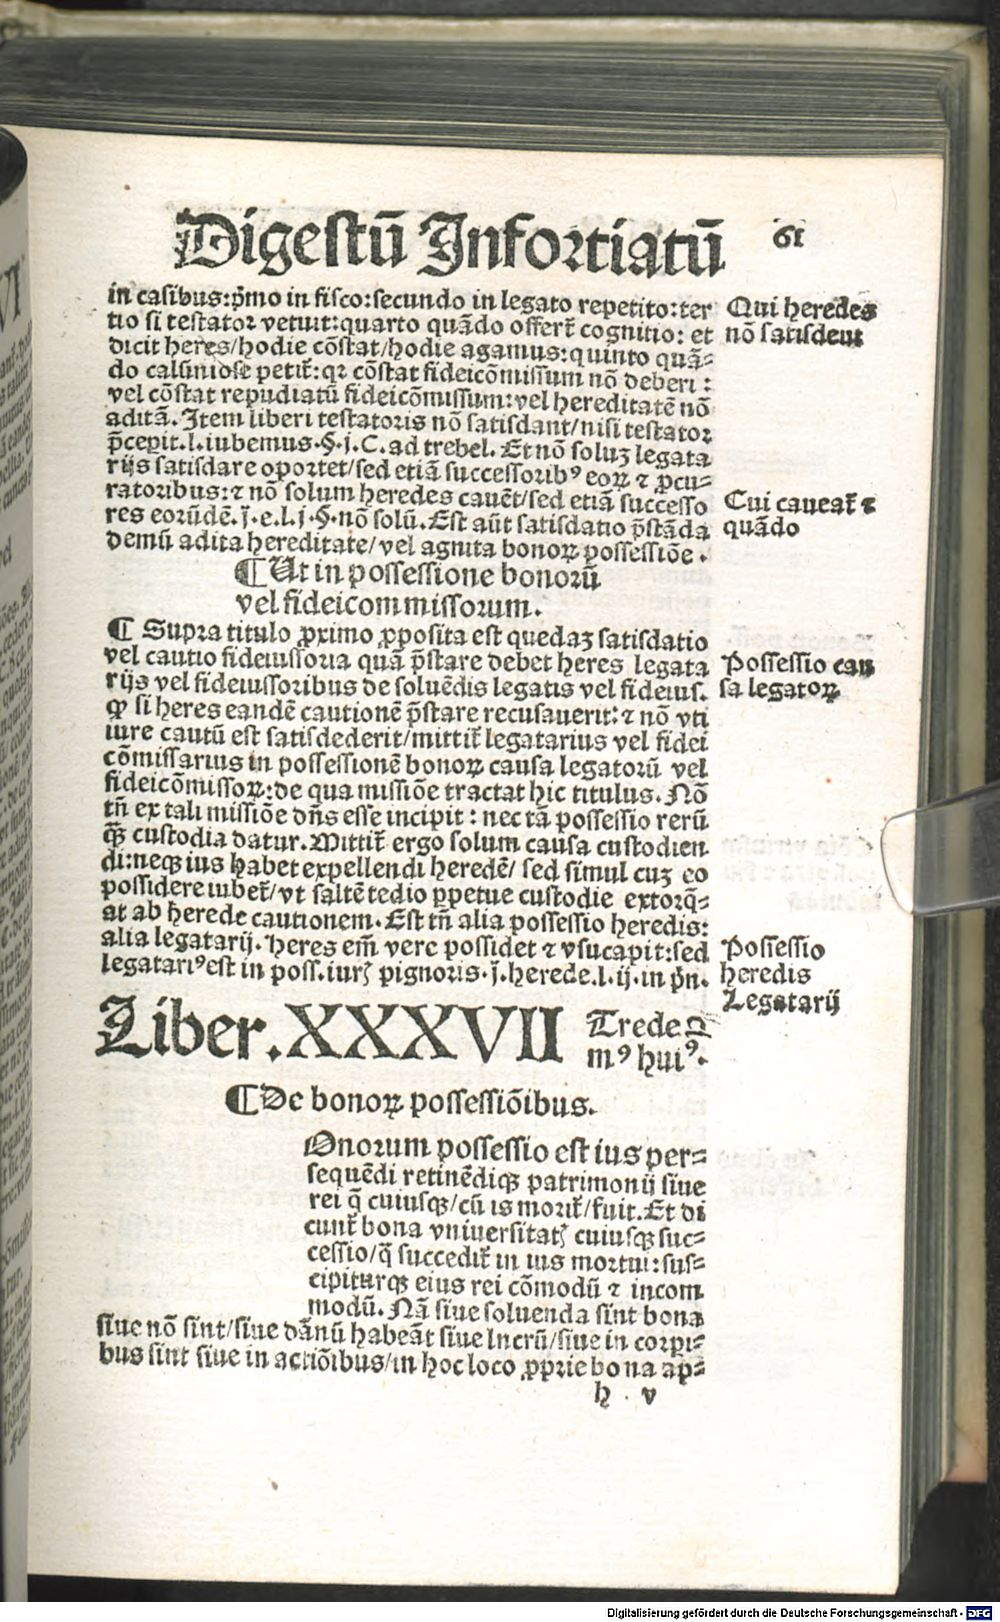 Digestū Infortiatū
61
in casibus:p̄mo in fisco:secundo in legato repetito:ter
tio si testator vetuit:quarto quādo offert̃ cognitio: et
dicit heres/hodie cōstat/hodie agamus:quinto quā-
do calūniose petit̃:qꝛ cōstat fideicōmissum nō deberi:
vel cōstat repudiatū fideicōmissum:vel hereditatē nō
aditā. Item liberi testatoris nō satisdant/nisi testator
p̄cepit.l.iubemus.§.j.C.ad trebel. Et nō soluꝫ legata
rijs satisdare oportet/sed etiā successoribꝰ eoꝝ ⁊ ꝓcu-
ratoribus:⁊ nō solum heredes cauēt/sed etiā successo
res eorūdē.ĵ.e.l.j.§.nō solū. Est aūt satisdatio p̄stāda
demū adita hereditate/vel agnita bonoꝝ possessiōe.
Qui heredes
nō satisdent
Cui caueat̃ ⁊
quādo
¶ Ut in possessione bonorū
vel fideicommissorum.
¶ Supra titulo ꝓximo ꝓposita est quedaꝫ satisdatio
vel cautio fideiussoria quā p̄stare debet heres legata
rijs vel fideiussoribus de soluēdis legatis vel fideius.
ꝙ si heres eandē cautionē p̄stare recusauerit:⁊ nō vti
iure cautū est satisdederit/mittit̃ legatarius vel fidei
cōmissarius in possessionē bonoꝝ causa legatorū vel
fideicōmissoꝝ:de qua missiōe tractat hic titulus. Nō
tn̄ ex tali missiōe dn̄s esse incipit: nec tā possessio rerū
q̄ꝫ custodia datur. Mittit̃ ergo solum causa custodien
di:neqꝫ ius habet expellendi heredē/ sed simul cuꝫ eo
possidere iubet̃/vt saltē tedio ꝑpetue custodie extorq̄-
at ab herede cautionem. Est tn̄ alia possessio heredis:
alia legatarij. Heres em̄ vere possidet ⁊ vsucapit:sed
legatariꝰ est in poss.iurꝭ pignoris.ĵ.herede.l.ij.in pn̄.
Possessio cau
sa legatoꝝ
Possessio
heredis
Legatarij
Liber.XXXVII
Trede
mꝰ huiꝰ.
¶ De bonoꝝ possessiōibus.
Onorum possessio est ius per-
sequēdi retinēdiqꝫ patrimonij siue
rei q̄ cuiusqꝫ/cū is morit̃/fuit. Et di
cunt̃ bona vniuersitatꝭ cuiusqꝫ suc-
cessio/q̄ succedit̃ in ius mortui:sus-
cipiturqꝫ eius rei cōmodū ⁊ incom
modū. Nā siue soluenda sint bona
siue nō sint/siue dānū habeāt siue lucrū/siue in corpi-
bus sint siue in actiōibus/in hoc loco ꝓprie bona ap-
h v
Digitalisierung gefördert durch die Deutsche Forschungsgemeinschaft - DFG